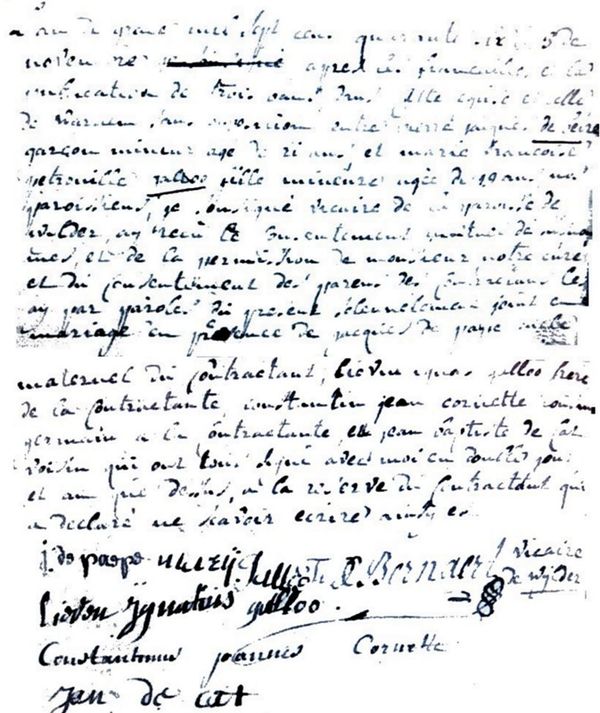 an de grace mil sept cens quarante six 5 de
novembre apres les fiancailles et la
publication de trois bans dans cette eglise et celle
de warhem sans opposition entre pierre jaques de
garçon mineur age de 21 ans et marie francoise
petronille galloo fille mineure agée de 19 ans nos
paroissiens, je soussigné vicaire de la paroisse de
wilder, ay recu le consentement mutuel de
et de la permission de monsieur notre curé
et du consentement des parens des contractans les
ay par paroles du present solennelement joint en
mariage en presence de jacques de paepe oncle
maternel du contractant, lieven ignas galloo frere
de la contractante, constantin jean cornette cousin
germain a la contractante, et jean baptiste de cat
voisin qui ont tous signé avec moi en double jour
et an que dessus, a la reserve du contractant qui
a declaré ne scavoir ecrire
j de paepe Bernaert vicaire
de wylder
lieven Ignatius galloo.
Constantinus joannes Cornette
Jan de catt